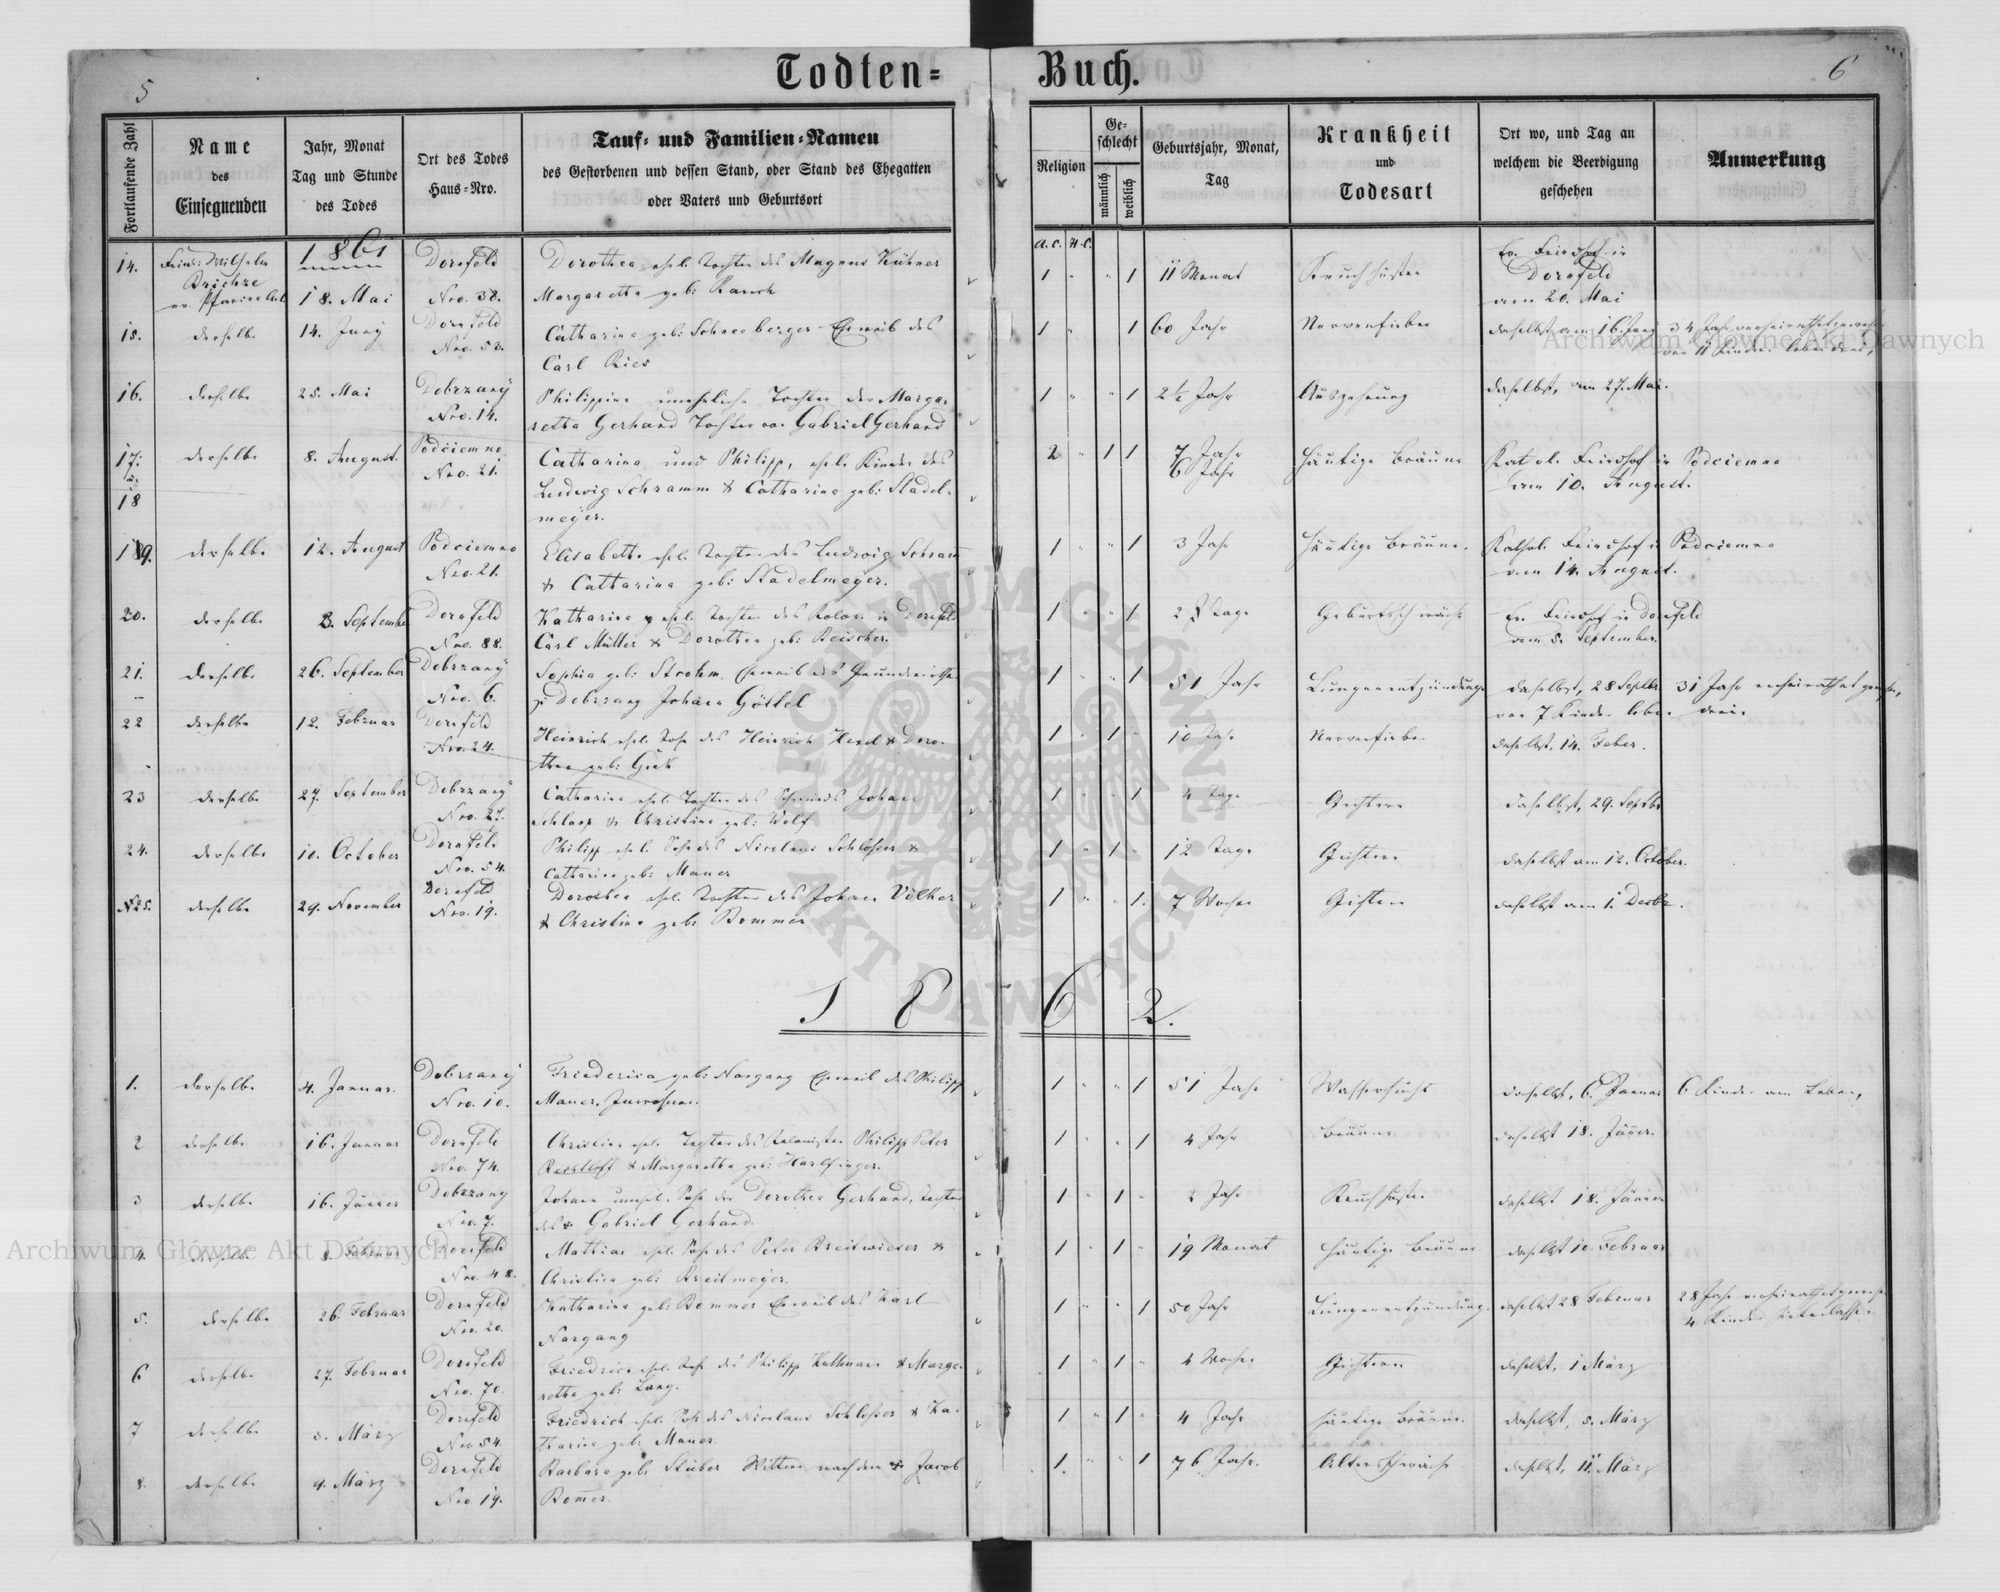 5
Todten=
Buch.
6
Fortlaufende Zahl
Name
des
Einsegnenden
Jahr, Monat
Tag und Stunde
des Todes
Ort des Todes
Haus=Nro.
Tauf= und Familien=Namen
des Gestorbenen und dessen Stand, oder Stand des Ehegatten
oder Vaters und Geburtsort
Religion
Ge=
schlecht
männlich
weiblich
Geburtsjahr, Monat,
Tag
Krankheit
und
Todesart
Ort wo, und Tag an
welchem die Beerdigung
geschehen
Anmerkung
1861
A.C. H.C.
14. Wilhelm 18. Mai Dornfeld Nro. 38.
Dorothea ehel. Tochter des Magnus Hübner
Margaretha geb: Rauch
1 " " 1 11 Monat Keuchhusten
Ev. Friedhof in
Dornfeld
am 20. Mai
15. derselbe 14. Juny Dornfeld Nro. 53.
Catharina geb: Schneeberger Eheweib des
Carl Ries
1 " 1 60 Jahr Nervenfieber daselbst am 16. Juny 34 Jahr
von 11 Kinder leben drei,
16. derselbe 25. Mai Dobrzany Nro. 14.
Philippina uneheliche Tochter der Marga=
retha Gerhard Tochter von Gabriel Gerhard
1 " " 1 2½ Jahr Auszehrung daselbst, am 27. Mai.
17. u. 18 derselbe 8. August. Podciemno Nro. 21.
Catharina und Philipp, ehel. Kinder des
Ludwig Schramm & Catharina geb: Stadel=
meyer.
2 " 1 1 7 Jahr
6 Jahr
Häutige Bräune Kathol. Friedhof in Podciemno
am 10. August.
19. derselbe 12. August Podciemno Nro. 21.
Elisabetha ehel. Tochter des Ludwig Schram
& Catharina geb: Stadelmeyer.
1 " " 1 3 Jahr Häutige Bräune. Kathol. Friedhof in Podciemno
am 14. August.
20. derselbe 3. September Dornfeld Nro. 88.
Katharina ehel. Tochter des Kolon. in Dornfeld
Carl Müller & Dorothea geb: Reischer.
1 " " 1 2 Tage Geburtsschwäche Ev. Friedhof in Dornfeld
am 5. September.
21. derselbe 26. September Dobrzany Nro. 6.
Sophia geb: Strohm, Eheweib des Grundwirthen
zu Dobrzany Johann Göttel
1 " " 1 51 Jahr Lungenentzündung daselbst, 28 Septbr. 31 Jahr verheirathet gewesen,
von 7 Kinder leben drei.
22 derselbe 12. Februar Dornfeld Nro. 24.
Heinrich ehel. Sohn des Heinrich & Doro=
thea geb:
1 " 1 " 10 Jahr Nervenfieber daselbst, 14. Feber.
23 derselbe 27. September Dobrzany Nro. 27.
Catharina ehel. Tochter des Schmieds Johann
Schlaap & Christina geb: Wolf
1 " " 1 4 Tage Gichtern daselbst, 29. Septbr
24. derselbe 10. October Dornfeld Nro. 54.
Philipp ehel. Sohn des Nicolaus Schlosser &
Catharina geb: Mauer
1 " 1 " 12 Tage Gichtern daselbst am 12. October.
25. derselbe 29. November Dornfeld Nro. 19.
Dorothea ehel. Tochter des Johann Völker
& Christina geb: Bommer
1 " " 1. 7 Wochen Gichtern daselbst am 1. Decbr.
1862.
1. derselbe 4. Januar. Dobrzany Nro. 10.
Friederica geb: Nargang Eheweib des Philipp
Mauer, Inwohner.
1 " " 1 51 Jahr Wassersucht daselbst, 6. Januar 6 Kinder am Leben,
2 derselbe 16. Januar Dornfeld Nro. 74.
Christina ehel. Tochter des Kolonisten Philipp Peter
& Margaretha geb: Harlfinger.
1 " " 1 4 Jahr Bräune daselbst 18. Jäner.
3 derselbe 16. Jänner Dobrzany Nro. 7.
Johann unehel. Sohn der Dorothea Gerhard, Tochter
des Gabriel Gerhard.
1 " 1 " 2 Jahr Keuchhusten daselbst 18. Jänner
4. derselbe 8. Februar Dornfeld Nro. 48.
Mathias ehel. Sohn des Peter Breitwieser &
Christina geb: Breitmeyer.
1 " 1 " 19 Monat Häutige Bräune daselbst 10. Februar
5. derselbe 26. Februar Dornfeld Nro. 20.
Katharina geb: Bommer Eheweib des Karl
Nargang
1 " " 1 50 Jahr Lungenentzündung. daselbst 28 Februar 28 Jahr verheirathet gewesen
4 Kinder hinterlassen
6 derselbe 27. Februar Dornfeld Nro. 70.
Friedrich ehel. Sohn des Philipp Kullmann & Marga=
retha geb: Lang.
1 " 1 " 4 Wochen Gichtern daselbst, 1 März
7 derselbe 3. März Dornfeld Nro 54.
Friedrich ehel. Sohn des Nicolaus Schlosser & Ka=
tharina geb: Mauer
1 " 1 " 4 Jahr Häutige Bräune. daselbst, 5. März
8. derselbe 9. März Dornfeld Nro. 19.
Barbara geb: Stuber Wittwe nach dem Jacob
Bomer.
1. " " 1 76 Jahr. Altersschwäche daselbst, 11. März
Archiwum Główne Akt Dawnych
Archiwum Główne Akt Dawnych
ARCHIWUM GŁÓWNE AKT DAWNYCH